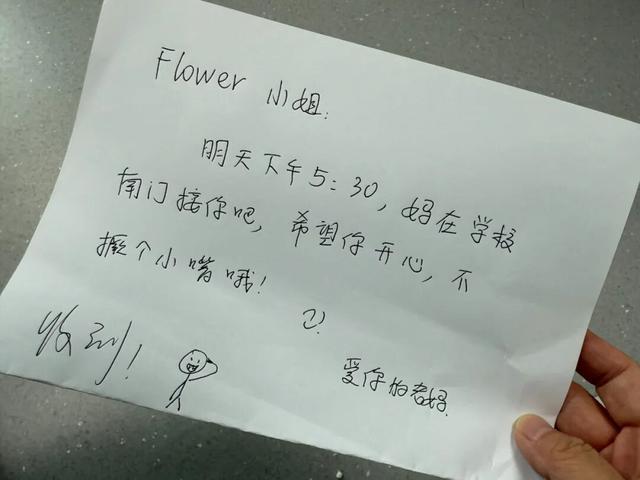 Flower 小姐:
明天下午5:30, 妈在学校
南门接你吧, 希望你开心, 不
撅个小嘴哦!
爱你的老妈.
收到!